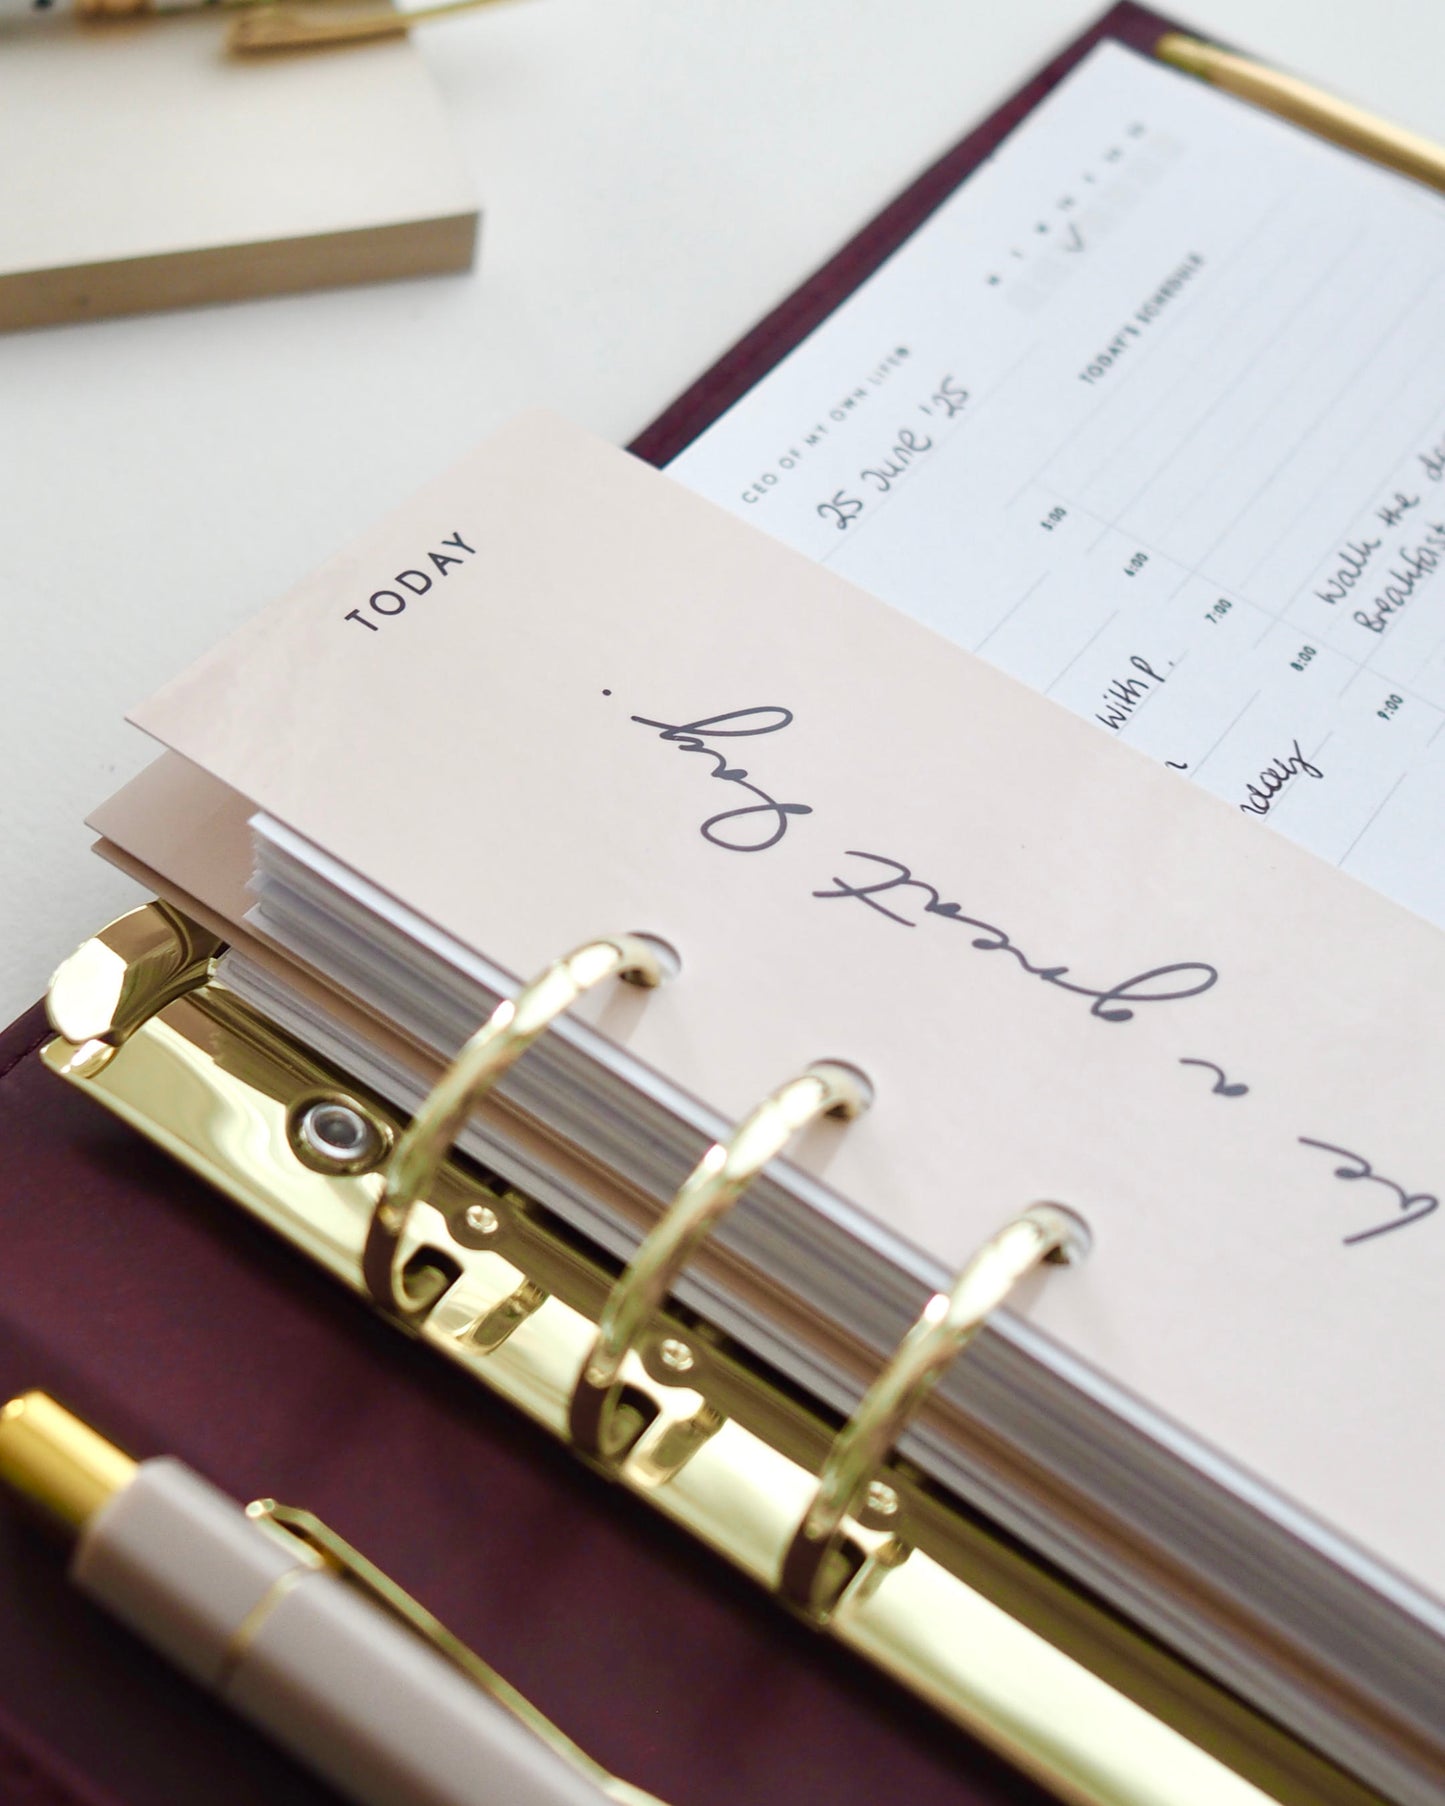 M T W T F S S
CEO OF MY OWN LIFE®
25 June '25
TODAY'S SCHEDULE
5:00
6:00
7:00
8:00 Walk the
9:00 Breakfast
with P.
TODAY
be a great day.